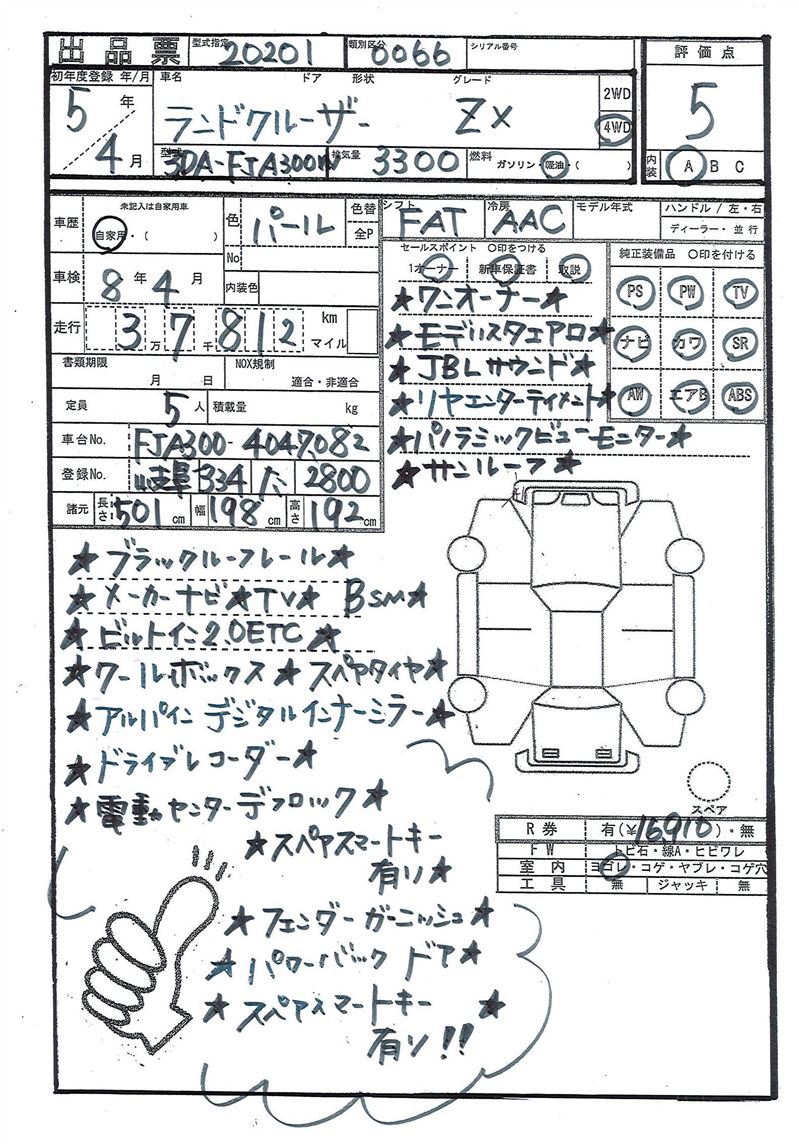 出品票 型式指定 20201 類別区分 0066 シリアル番号
評価点
5
内装 A B C
初年度登録 年/月 車名 ドア 形状 グレード
5年 4月 ランドクルーザー ZX 2WD 4WD
型式 3DA-FJA300W 排気量 3300 燃料 ガソリン・軽油・( )
車歴 未記入は自家用車 自家用・( ) 色 パール 色替 全P
No 内装色
シフト FAT 冷房 AAC モデル年式 ハンドル / 左・右
ディーラー・並行
車検 8年 4月
走行 3万 7千 812 km マイル
書類期限 月 日 NOX規制 適合・非適合
定員 5人 積載量 kg
車台No. FJA300-4047082
登録No. 岐阜 334 た 2800
諸元 長さ 501 cm 幅 198 cm 高さ 192 cm
セールスポイント 〇印をつける
1オーナー 新車保証書 取説
純正装備品 〇印を付ける
PS PW TV
ナビ カワ SR
AW エアB ABS
★ワンオーナー★
★モデリスタエアロ★
★JBLサウンド★
★リヤエンターティメント★
★パノラミックビューモニター★
★サンルーフ★
★ブラックルーフレール★
★メーカーナビ★TV★ BSM★
★ビルトイン2.0ETC★
★クールボックス★スペアタイヤ★
★アルパイン デジタルインナーミラー★
★ドライブレコーダー★
★電動センターデフロック★
★スペアスマートキー
有り★
★フェンダーガーニッシュ★
★パワーバックドア★
★スペアスマートキー ★
有り!!
スペア
R券 有(¥16910)・無
FW トビ石・線A・ヒビワレ
室内 ヨゴレ・コゲ・ヤブレ・コゲ穴
工具 無 ジャッキ 無